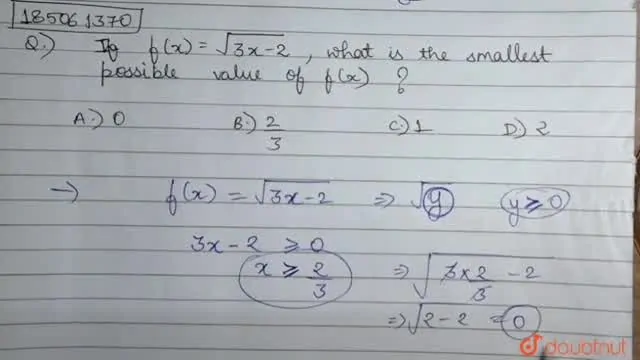 185061370
Q.) If f(x) = √3x-2, what is the smallest
possible value of f(x) ?
A.) 0 B.) 2/3 C.) 1 D.) 2
→ f(x) = √3x-2 ⇒ √y y ≥ 0
3x - 2 ≥ 0
x ≥ 2/3 ⇒ √3×2/3 - 2
⇒ √2-2 = 0
doubtnut